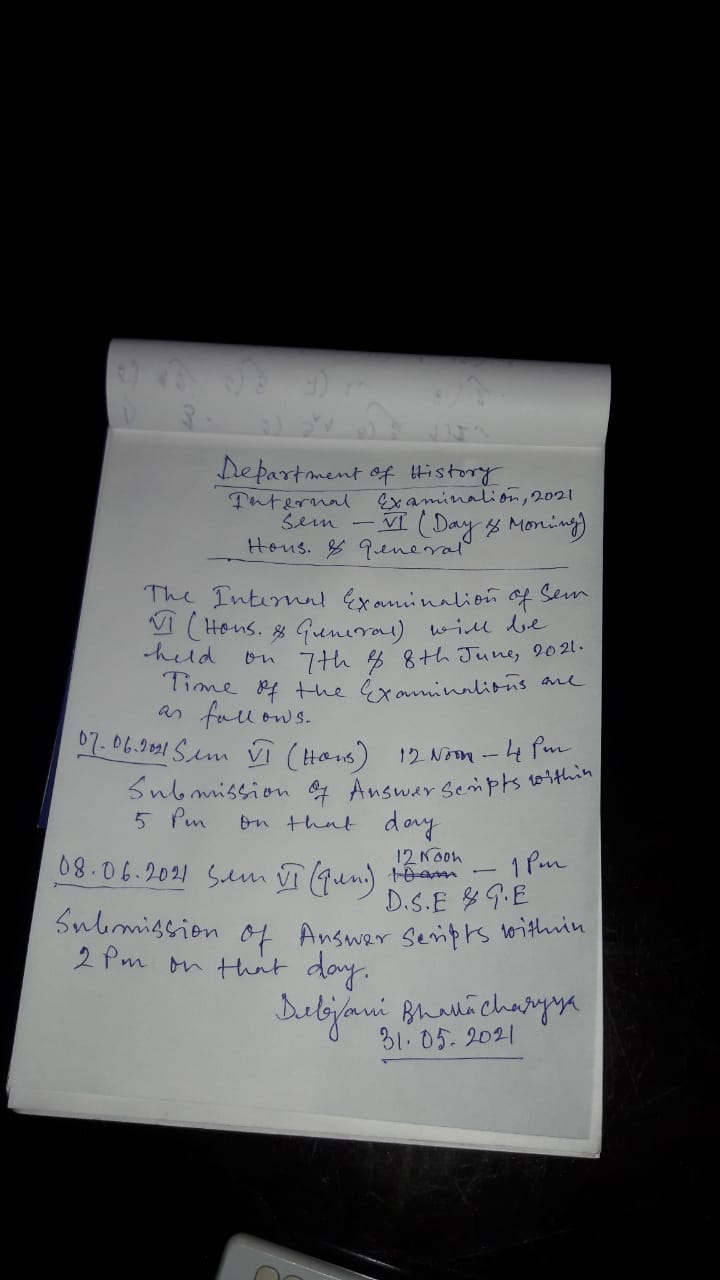 Department of History
Internal Examination, 2021
Sem - VI (Day & Morning)
Hons. & general
The Internal Examination of Sem
VI (Hons. & General) will be
held on 7th & 8th June, 2021.
Time of the Examinations are
as follows.
07.06.2021 Sem VI (Hons) 12 Noon - 4 Pm
Submission of Answer Scripts within
5 Pm on that day
12 Noon
08.06.2021 Sem VI (Gen.) 10 am - 1 Pm
D.S.E & G.E
Submission of Answer Scripts within
2 Pm on that day.
Debjani Bhattacharyya
31.05.2021